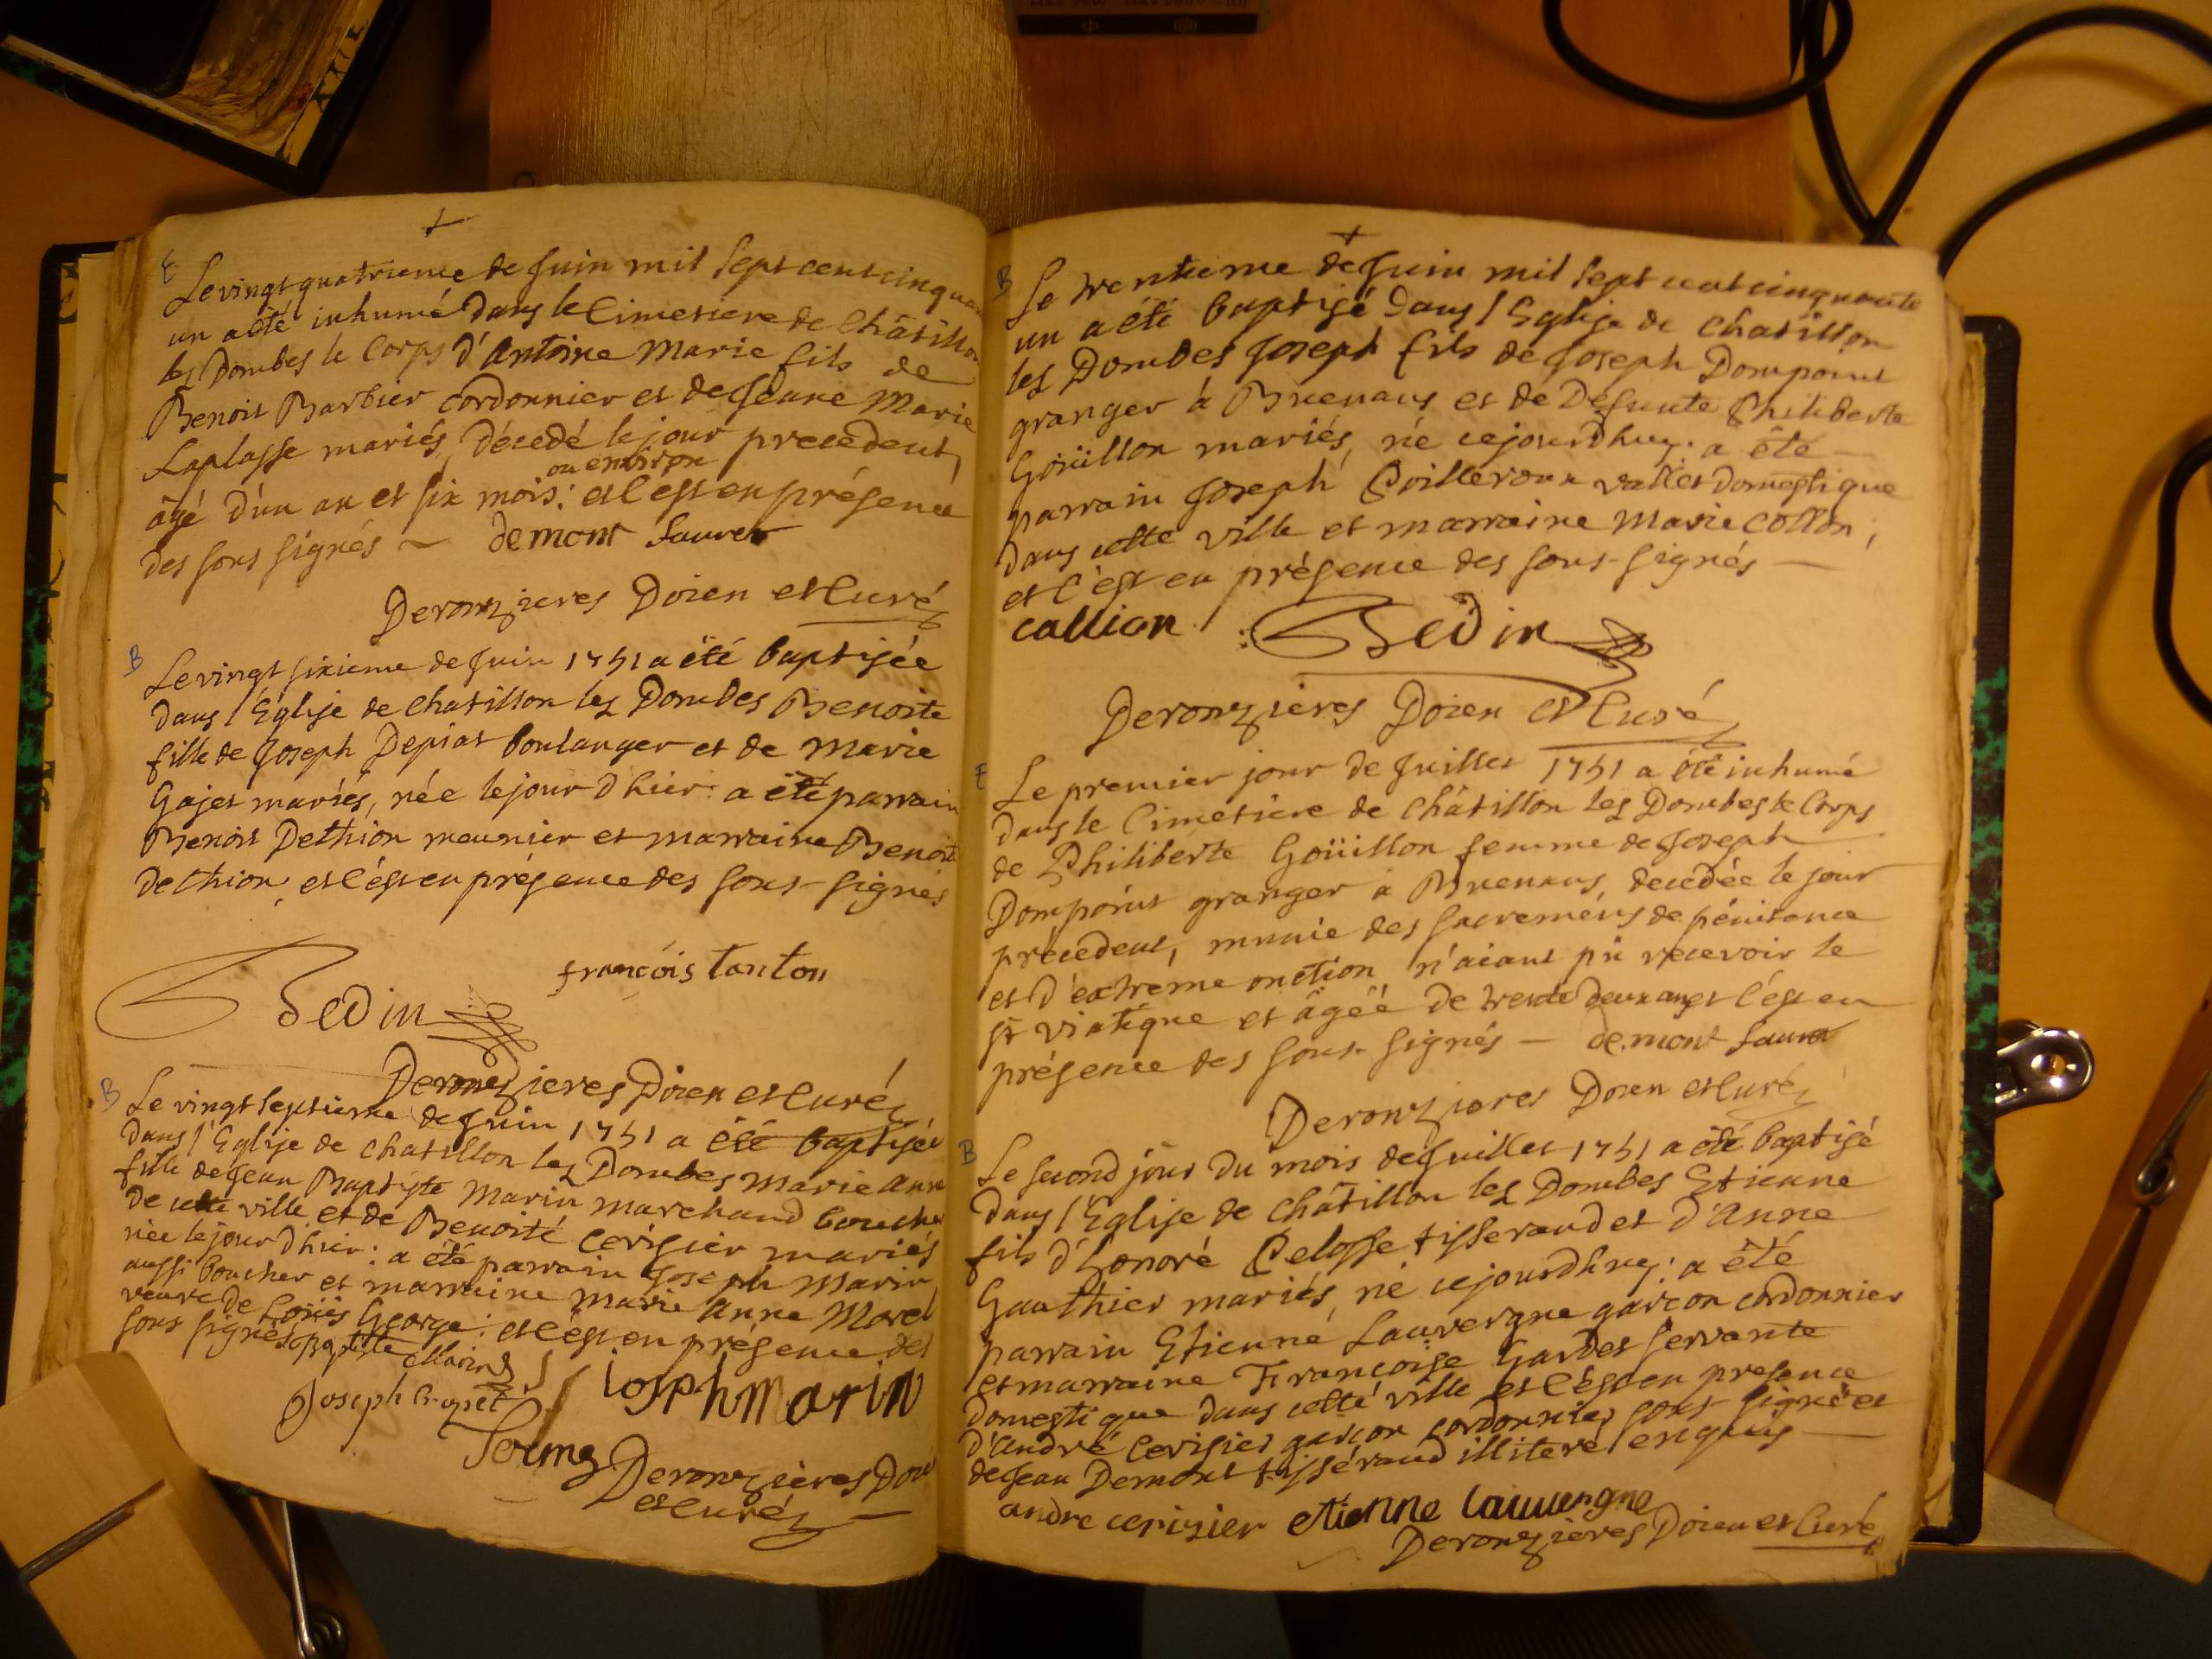 +
E
Le vingt quatrieme de Juin mil sept cent cinqua
un a été inhumé dans le Cimetiere de Châtillon
les Dombes le Corps d'Antoine Marie fils de
Benoit Barbier Cordonnier et de Jeane Marie
Laplasse mariés, décedé le jour precedent,
ou environ
âgé d'un an et six mois: et c'est en présence
des sous signés — demont Sauvet
Deronzieres Doien et Curé
B
Le vingt sixieme de Juin 1751 a été baptisée
dans l'Eglise de Chatillon les Dombes Benoite
fille de Joseph Depiat boulanger et de Marie
Gajet mariés, née le jour d'hier: a été parrain
Benoit Dethion meunier et marraine Benoit
dethion, et c'est en présence des sous-signés
françois tonton
Bedin
Deronzieres Doien et Curé
B
Le vingt septieme de Juin 1751 a été baptisée
dans l'Eglise de Chatillon les Dombes Marie Anne
fille de Jean Baptiste Marin marchand boucher
de cette ville et de Benoité Cerisier mariés
née le jour d'hier: a été parrain Joseph Marin
aussi boucher et marraine Marie Anne Morel
veuve de Loüis George: et c'est en présence des
sous signés Jopaptiste Marin
iosphmarin
Joseph
Deronzières Doie
et Curé
+
B
Le trentieme de Juin mil sept cent cinquante
un a été baptisé dans l'Eglise de Chatillon
les Dombes Joseph fils de Joseph Dompoint
granger à Bruenans et de Defunte Philiberte
Goüillon mariés, né cejourdhuy: a été —
parrain Joseph Poilleroux vallet domestique
dans cette ville et marraine Marie Collon,
et c'est en présence des sous-signés —
callion Bedin
Deronzières Doien et Curé
E
Le premier jour de Juillet 1751 a été inhumé
dans le Cimetiere de Châtillon les Dombes le Corps
de Philiberte Goüillon femme de Joseph
Dompoint granger à Bruenans, decedée le jour
précedent, munie des sacremens de pénitence
et d'extreme onction n'aiant pû recevoir le
st viatique et âgée de trente deux ans et c'est en
présence des sous-signés — demont Sauvet
Deronzieres Doien et Curé
B
Le second jour du mois de Juillet 1751 a été baptisé
dans l'Eglise de Châtillon les Dombes Etienne
fils d'honoré Pelosse tisserand et d'Anne
Gauthier mariés, né cejourdhuy: a été
parrain Etienne Lauvergne garcon cordonnier
et marraine Francoise Gardet servante
domestique dans cette ville et c'est en presence
d'André Cerisier garcon cordonnier sous-signé et
de Jean Demont tisserand illiteré enquis —
andre cerisier etienne lauvergne
Deronzières Doien et Curé